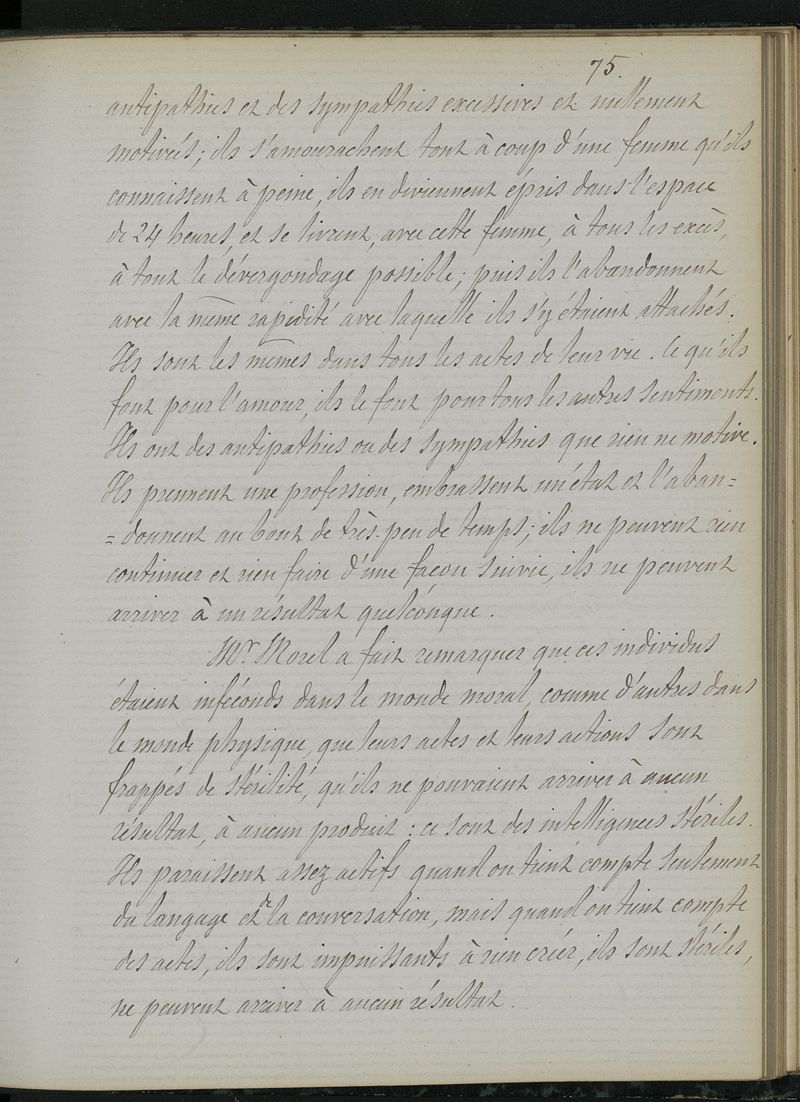 75.
antipathies et des sympathies excessives et nullement
motivées; ils s'amourachent tout à coup d'une femme qu'ils
connaissent à peine, ils en deviennent épris dans l'espace
de 24 heures, et se livrent, avec cette femme, à tous les excès,
à tout le dévergondage possible; puis ils l'abandonnent
avec la même rapidité avec laquelle ils s'y étaient attachés.
Ils sont les mêmes dans tous les actes de leur vie. Ce qu'ils
font pour l'amour, ils le font pour tous les autres sentiments.
Ils ont des antipathies ou des sympathies que rien ne motive.
Ils prennent une profession, embrassent un état et l'aban=
=donnent au bout de très-peu de temps; ils ne peuvent rien
continuer et rien faire d'une façon suivie, ils ne peuvent
arriver à un résultat quelconque.
Mr. Morel a fait remarquer que ces individus
étaient inféconds dans le monde moral, comme d'autres dans
le monde physique, que leurs actes et leurs actions sont
frappés de stérilité, qu'ils ne pouvaient arriver à aucun
résultat, à aucun produit: ce sont des intelligences stériles.
Ils paraissent assez actifs quand on tient compte seulement
du langage et de la conversation, mais quand on tient compte
des actes, ils sont impuissants à rien créer, ils sont stériles,
ne peuvent arriver à aucun résultat.